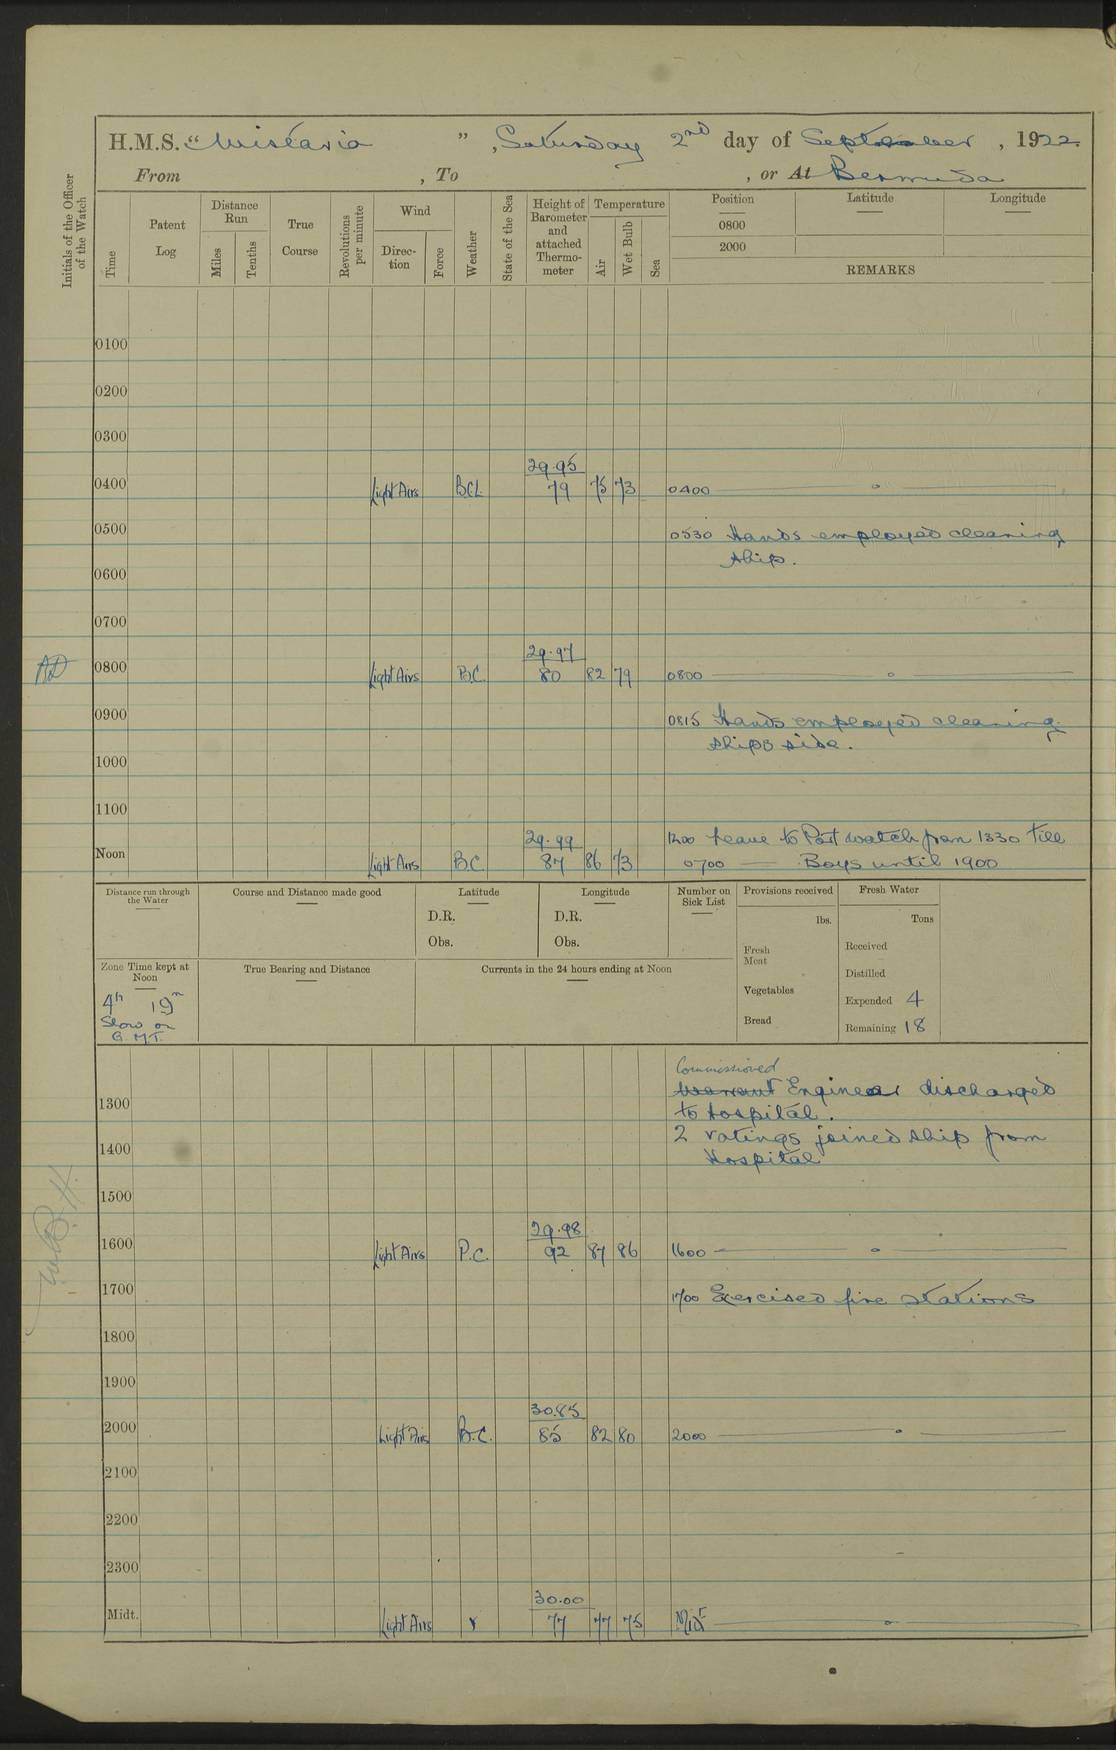 H.M.S. "Wistaria", Saturday 2nd day of September, 1922.
From , To , or At Bermuda
Initials of the Officer of the Watch
Time
Patent Log
Distance Run
Miles
Tenths
True Course
Revolutions per minute
Wind
Direc-tion
Force
Weather
State of the Sea
Height of Barometer and attached Thermo-meter
Temperature
Air
Wet Bulb
Sea
Position
0800
2000
Latitude
Longitude
REMARKS
0100
0200
0300
29.95
0400 Light Airs B.C.L. 79 75 73 0400
0500 0530 Hands employed cleaning
ship.
0600
0700
29.97
0800 Light Airs B.C. 80 82 79 0800
0900 0815 Hands employed cleaning
ships side.
1000
1100
29.99 1200 Leave to Port watch from 1330 till
Noon Light Airs B.C. 87 86 73 0700 — Boys until 1900
Distance run through the Water
Course and Distance made good
Latitude
D.R.
Obs.
Longitude
D.R.
Obs.
Number on Sick List
Provisions received
lbs.
Fresh Meat
Vegetables
Bread
Fresh Water
Tons
Received
Distilled
Expended 4
Remaining 18
Zone Time kept at Noon
4h 19m
Slow on
G.M.T.
True Bearing and Distance
Currents in the 24 hours ending at Noon
Commissioned
1300 Warrant Engineer discharged
to hospital.
1400 2 ratings joined ship from
Hospital
1500
29.98
1600 Light Airs P.C. 92 87 86 1600
1700 1700 Exercised fire stations
1800
1900
30.85
2000 Light Airs B.C. 85 82 80 2000
2100
2200
2300
30.00
Midt. Light Airs r 77 77 75 Midt